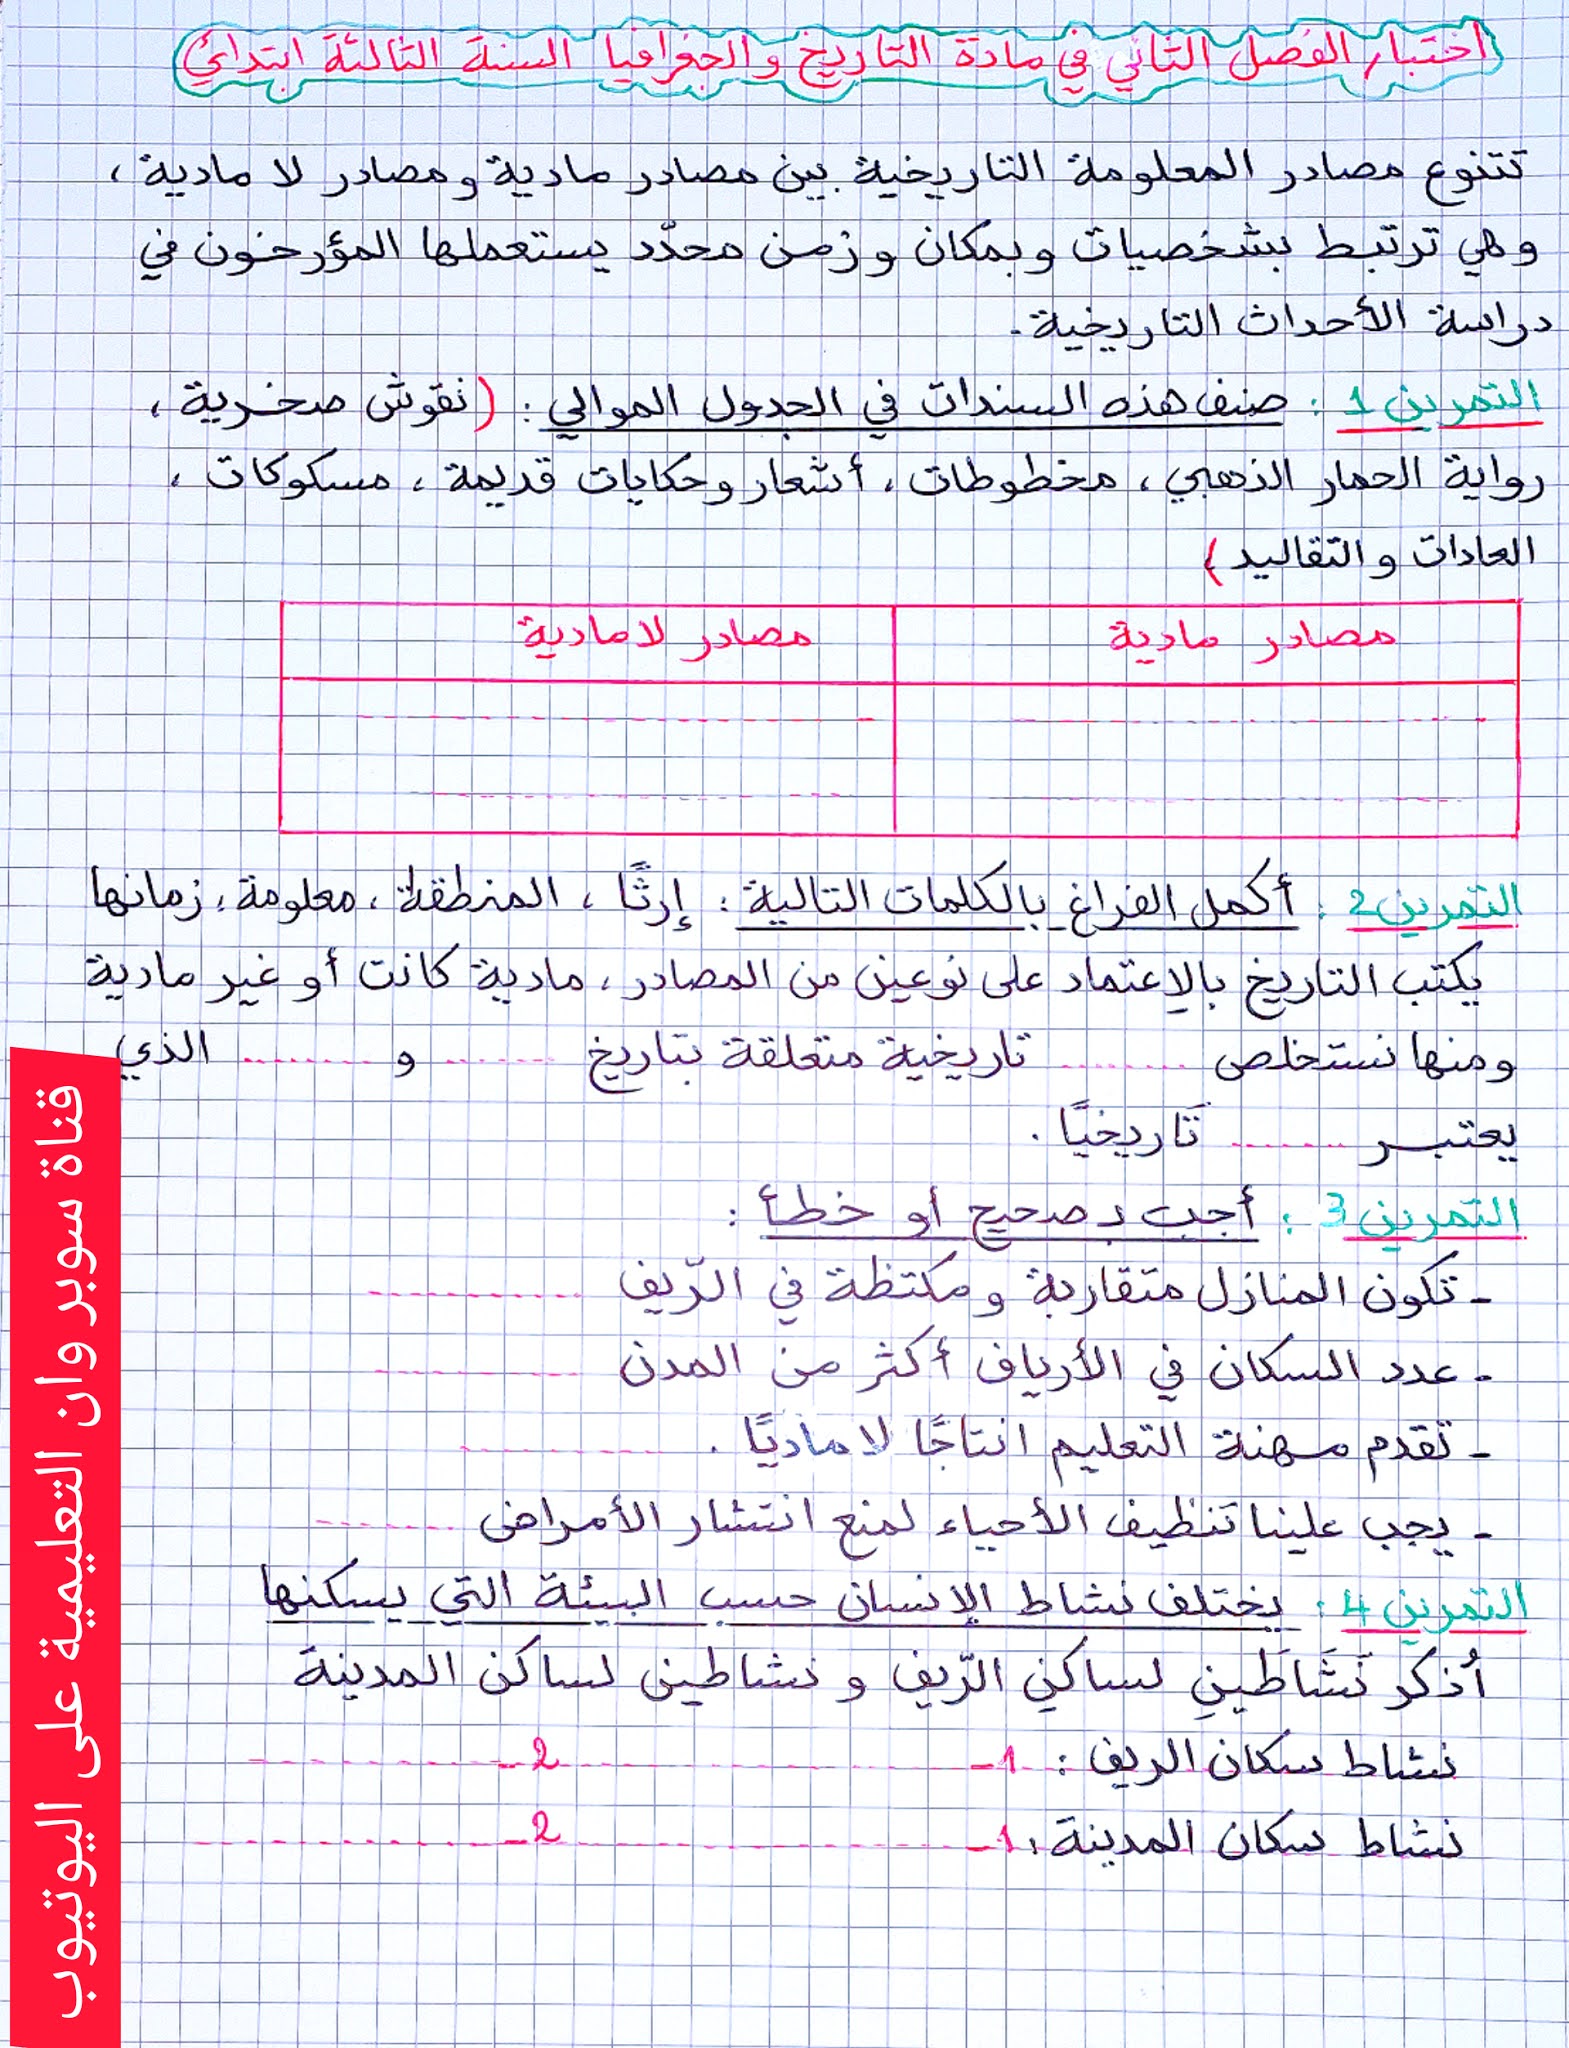 اختبار الفصل الثاني في مادة التاريخ والجغرافيا السنة الثالثة ابتدائي
تتنوع مصادر المعلومة التاريخية بين مصادر مادية ومصادر لا مادية ،
وهي ترتبط بشخصيات وبمكان وزمن محدّد يستعملها المؤرخون في
دراسة الأحداث التاريخية .
التمرين 1 : صنف هذه السندات في الجدول الموالي : (نقوش صخرية ،
رواية الحمار الذهبي ، مخطوطات ، أشعار وحكايات قديمة ، مسكوكات ،
العادات والتقاليد)
مصادر مادية مصادر لا مادية
التمرين 2 : أكمل الفراغ بالكلمات التالية : إرثًا ، المنطقة ، معلومة ، زمانها
يكتب التاريخ بالاِعتماد على نوعين من المصادر ، مادية كانت أو غير مادية
ومنها نستخلص ........ تاريخية متعلقة بتاريخ ........ و ........ الذي
يعتبر ........ تَاريخيًا .
التمرين 3 : أجب بـ صحيح أو خطأ :
- تكون المنازل متقاربة ومكتظة في الرّيف ............
- عدد السكان في الأرياف أكثر من المدن ............
- تقدم مهنة التعليم انتاجًا لا ماديًا . ............
- يجب علينا تنظيف الأحياء لمنع انتشار الأمراض ........
التمرين 4 : يختلف نشاط الإنسان حسب البيئة التي يسكنها
اُذكر نَشَاطَينِ لساكني الرّيف و نشاطين لساكن المدينة
نشاط سكان الريف : 1- ............ 2- ............
نشاط سكان المدينة : 1- ............ 2- ............
قناة سوبر وان التعليمية على اليوتيوب